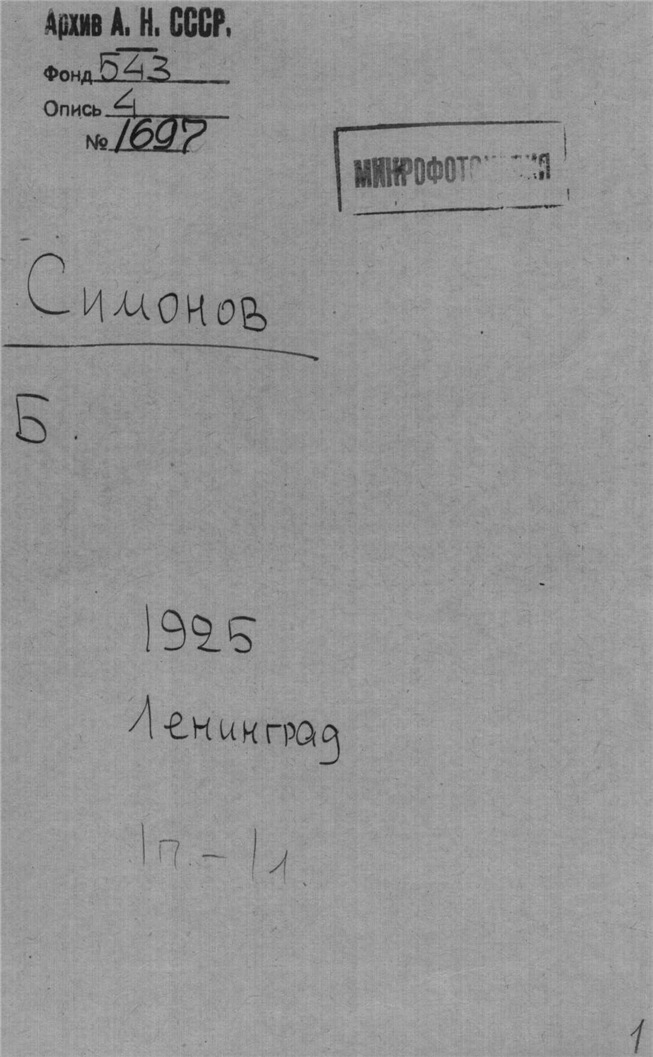 Архив А. Н. СССР.
Фонд 543
Опись 4
№ 1697
Симонов
Б.
1925
Ленинград
1п. – 1л.
1